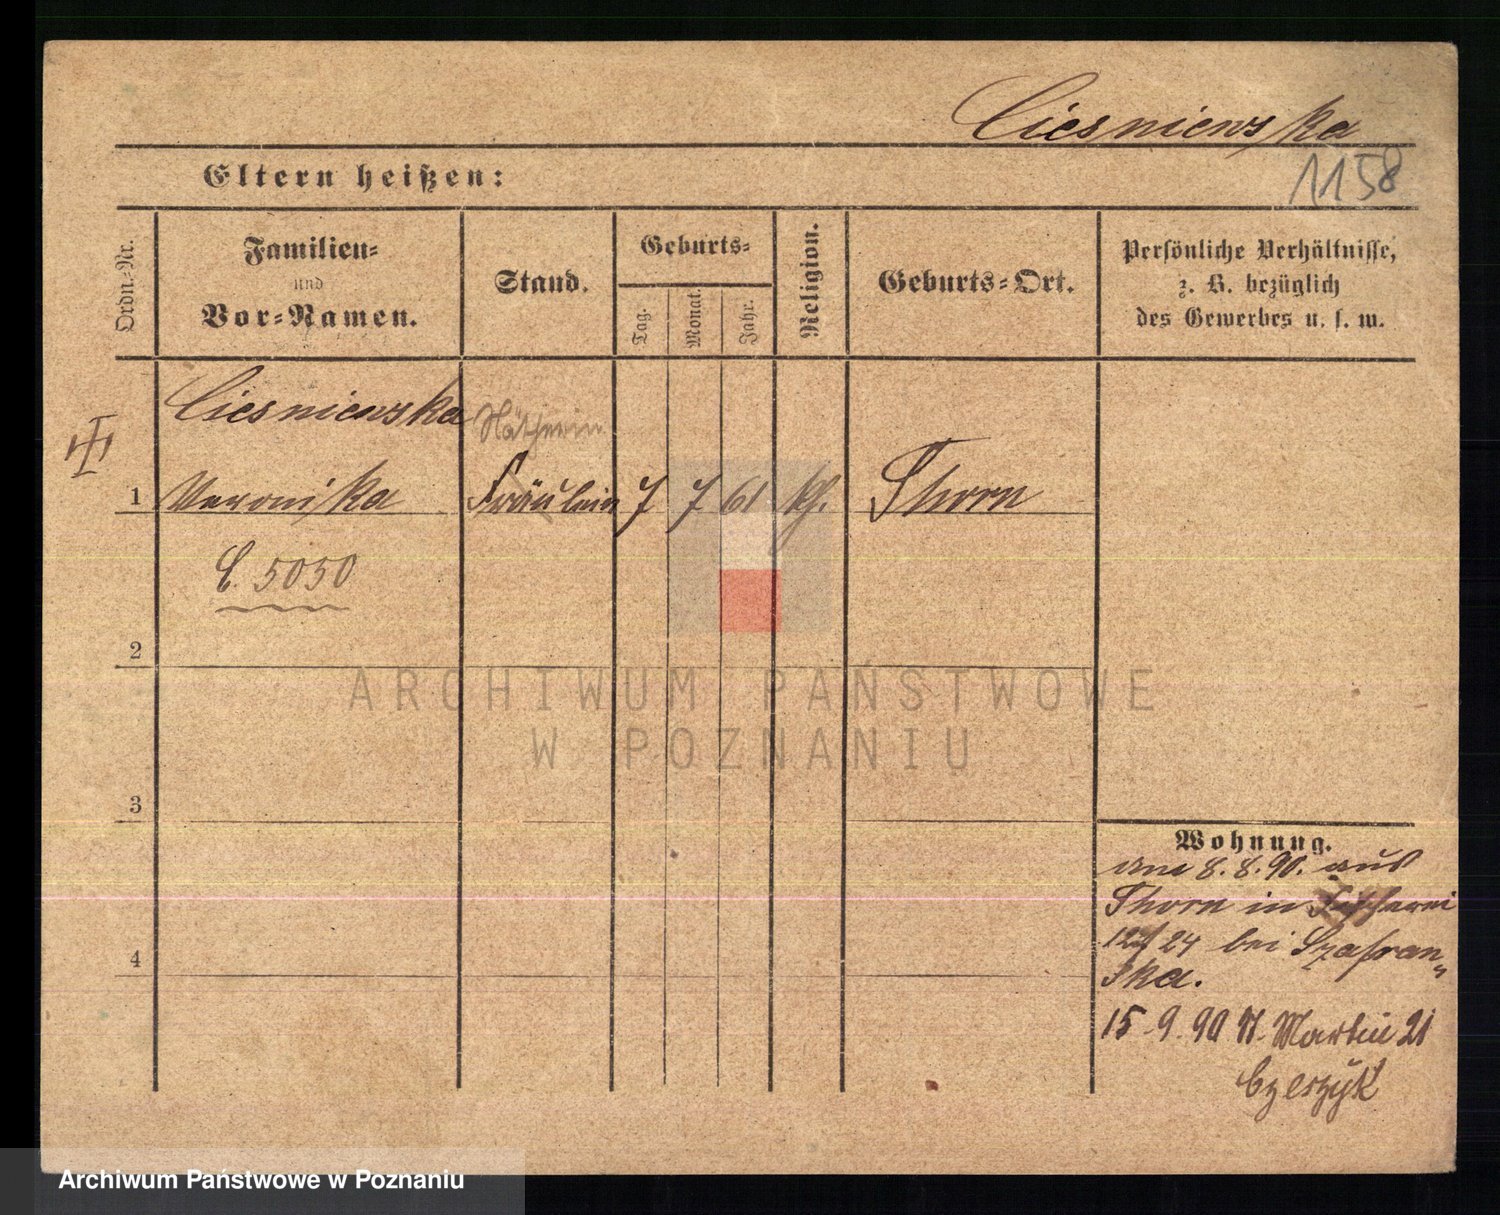 Ciesniewska
1158
Eltern heißen:
Ordn.-Nr.
Familien-
und
Vor-Namen.
Stand.
Geburts-
Tag.
Monat.
Jahr.
Religion.
Geburts-Ort.
Persönliche Verhältnisse,
z. B. bezüglich
des Gewerbes u. s. w.
Ciesniewska Nätherin
1 Veronika Fräulein 7 7 61 kth. Thorn
C. 5050
2
ARCHIWUM PAŃSTWOWE
W POZNANIU
3
Wohnung.
am 8.8.90. aus
Thorn in
24 bei Szafran-
ska.
15.9.90 St. Martin 21
Archiwum Państwowe w Poznaniu
4